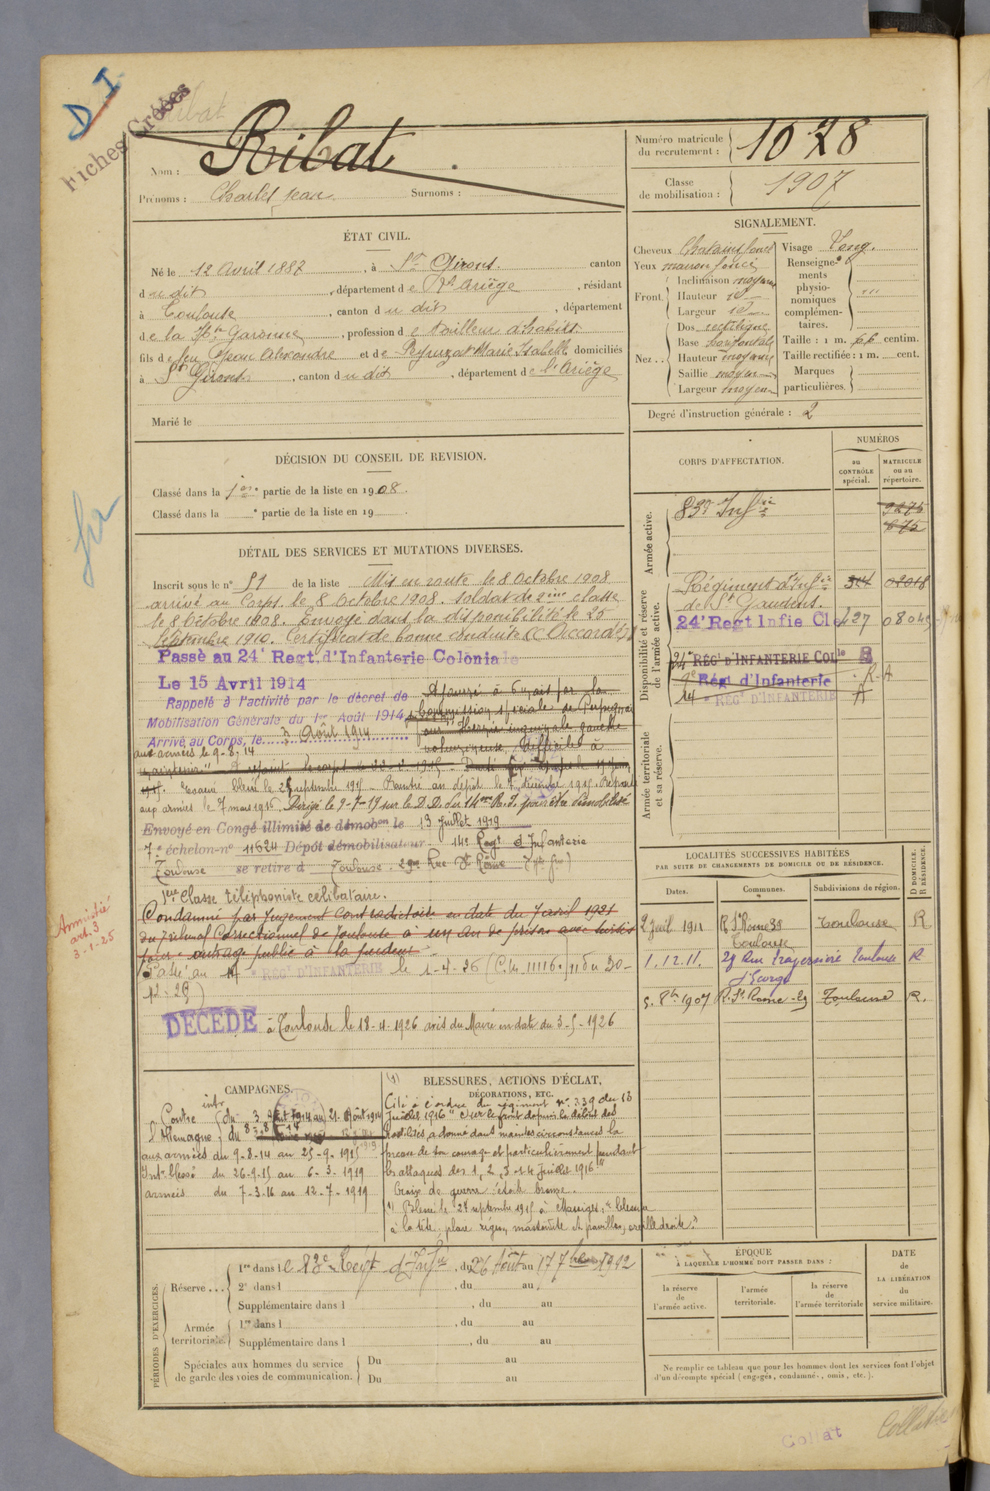 D I
Fiches Créées
Nom : Ribat
Prénoms : Charles Jean Surnoms :
Numéro matricule
du recrutement : 1028
Classe
de mobilisation : 1907
ÉTAT CIVIL.
Né le 12 Avril 1887, à St Girons. canton
du dit, département de l'Ariège, résidant
à Toulouse, canton du dit, département
de la Hte Garonne, profession de tailleur d'habits
fils de feu Jean Alexandre et de Marie Isabelle domiciliés
à St Girons, canton du dit, département de l'Ariège
Marié le
SIGNALEMENT.
Cheveux Chatains foncé
Yeux marron foncé
Front. Inclinaison moyenne
Hauteur id
Largeur id
Nez... Dos rectiligne
Base horizontale
Hauteur moyenne
Saillie moyenne
Largeur moyenne
Visage Long.
Renseignements
physionomiques
complémentaires.
Taille : 1 m. 66 centim.
Taille rectifiée : 1 m. cent.
Marques
particulières.
Degré d'instruction générale : 2
DÉCISION DU CONSEIL DE REVISION.
Classé dans la 1ère partie de la liste en 1908.
Classé dans la e partie de la liste en 19
DÉTAIL DES SERVICES ET MUTATIONS DIVERSES.
Inscrit sous le n° 51 de la liste Mis en route le 8 Octobre 1908
arrivé au Corps le 8 Octobre 1908. soldat de 2ème classe
le 8 Octobre 1908. Envoyé dans la disponibilité le 25
Septembre 1910. Certificat de bonne conduite "Accordé"
Passé au 24e Regt. d'Infanterie Coloniale
Le 15 Avril 1914
Rappelé à l'activité par le décret de
Mobilisation Générale du 1er Août 1914
Arrivé au Corps, le 3 Août 1914
Ajourné à 6 mois par la
Commission spéciale de Perpignan
pour Hernie inguinale gauche
volumineuse, difficile à
aux armées le 9-8-14
maintenir
blessé le 25 septembre 1915 - Rentré au dépôt le 7 décembre 1915. Reparti
aux armées le 7 mars 1916. Dirigé le 9-7-19 sur le D.D. du 14me R.I. pour être démobilisé
Envoyé en Congé illimité de démobon le 13 Juillet 1919
7e échelon-n° 11624 Dépôt démobilisateur. 14e Regt d'Infanterie
Toulouse se retire à Toulouse. 29 Rue St Rome
1ère Classe téléphoniste célibataire.
Condamné par Jugement Contradictoire en date du 7 avril 1921
du Tribunal Correctionnel de Toulouse à un an de prison avec sursis
pour "outrage public à la pudeur"
Amnistié
art. 3
3-1-25
Passé au 14e REGt D'INFANTERIE le 1-4-26 (C.M. 11116 du 20-
12-25)
DÉCÉDÉ à Toulouse le 18-4-1926 avis du Maire en date du 3-5-1926
CORPS D'AFFECTATION.
NUMÉROS
au
CONTRÔLE
spécial.
MATRICULE
ou au
répertoire.
Armée active.
83e Infie
9275
675
Disponibilité et réserve
de l'armée active.
Régiment d'Infie
de St Gaudens.
24e Regt Infie Cle 427
24e RÉGt D'INFANTERIE COLle
Régt d'Infanterie R. A
14e REGt D'INFANTERIE A
Armée territoriale
et sa réserve.
LOCALITÉS SUCCESSIVES HABITÉES
PAR SUITE DE CHANGEMENTS DE DOMICILE OU DE RÉSIDENCE.
Dates. Communes. Subdivisions de région. D DOMICILE. R RÉSIDENCE.
2 Juil 1911 R St Rome 39 Toulouse Toulouse R
1.12.11. 28 Rue Traversière St Georges Toulouse R
R. St Rome - 29 Toulouse R.
CAMPAGNES.
Contre
l'Allemagne
intr du 3 Août 1914 au
aux armées du 9-8-14 au 25-9-1915
Intr blessé du 26-9-15 au 6-3-1919
armées du 7-3-16 au 12-7-1919
BLESSURES, ACTIONS D'ÉCLAT,
DÉCORATIONS, ETC.
Cité à l'ordre du régiment n° 339 du 18
Juillet 1916 "Sur le front depuis le début des
hostilités a donné dans maintes circonstances la
preuve de son courage et particulièrement pendant
les attaques des 1, 2, 3 et 4 Juillet 1916"
Croix de guerre étoile bronze.
(1) Blessé le 25 septembre 1915 à Massiges, "blessure
à la tête, plaie région mastoïde et pavillon, oreille droite."
PÉRIODES D'EXERCICES.
Réserve... 1re dans le 83e Regt d'Infie, du 26 Août au 17 7bre 1912
2e dans l , du au
Supplémentaire dans l , du au
Armée
territoriale. 1re dans l , du au
Supplémentaire dans l , du au
Spéciales aux hommes du service
de garde des voies de communication. Du au
Du au
ÉPOQUE
À LAQUELLE L'HOMME DOIT PASSER DANS :
la réserve
de
l'armée active.
l'armée
territoriale.
la réserve
de
l'armée territoriale
DATE
de
LA LIBÉRATION
du
service militaire.
Ne remplir ce tableau que pour les hommes dont les services font l'objet
d'un décompte spécial (engagés, condamnés, omis, etc.).
Collat